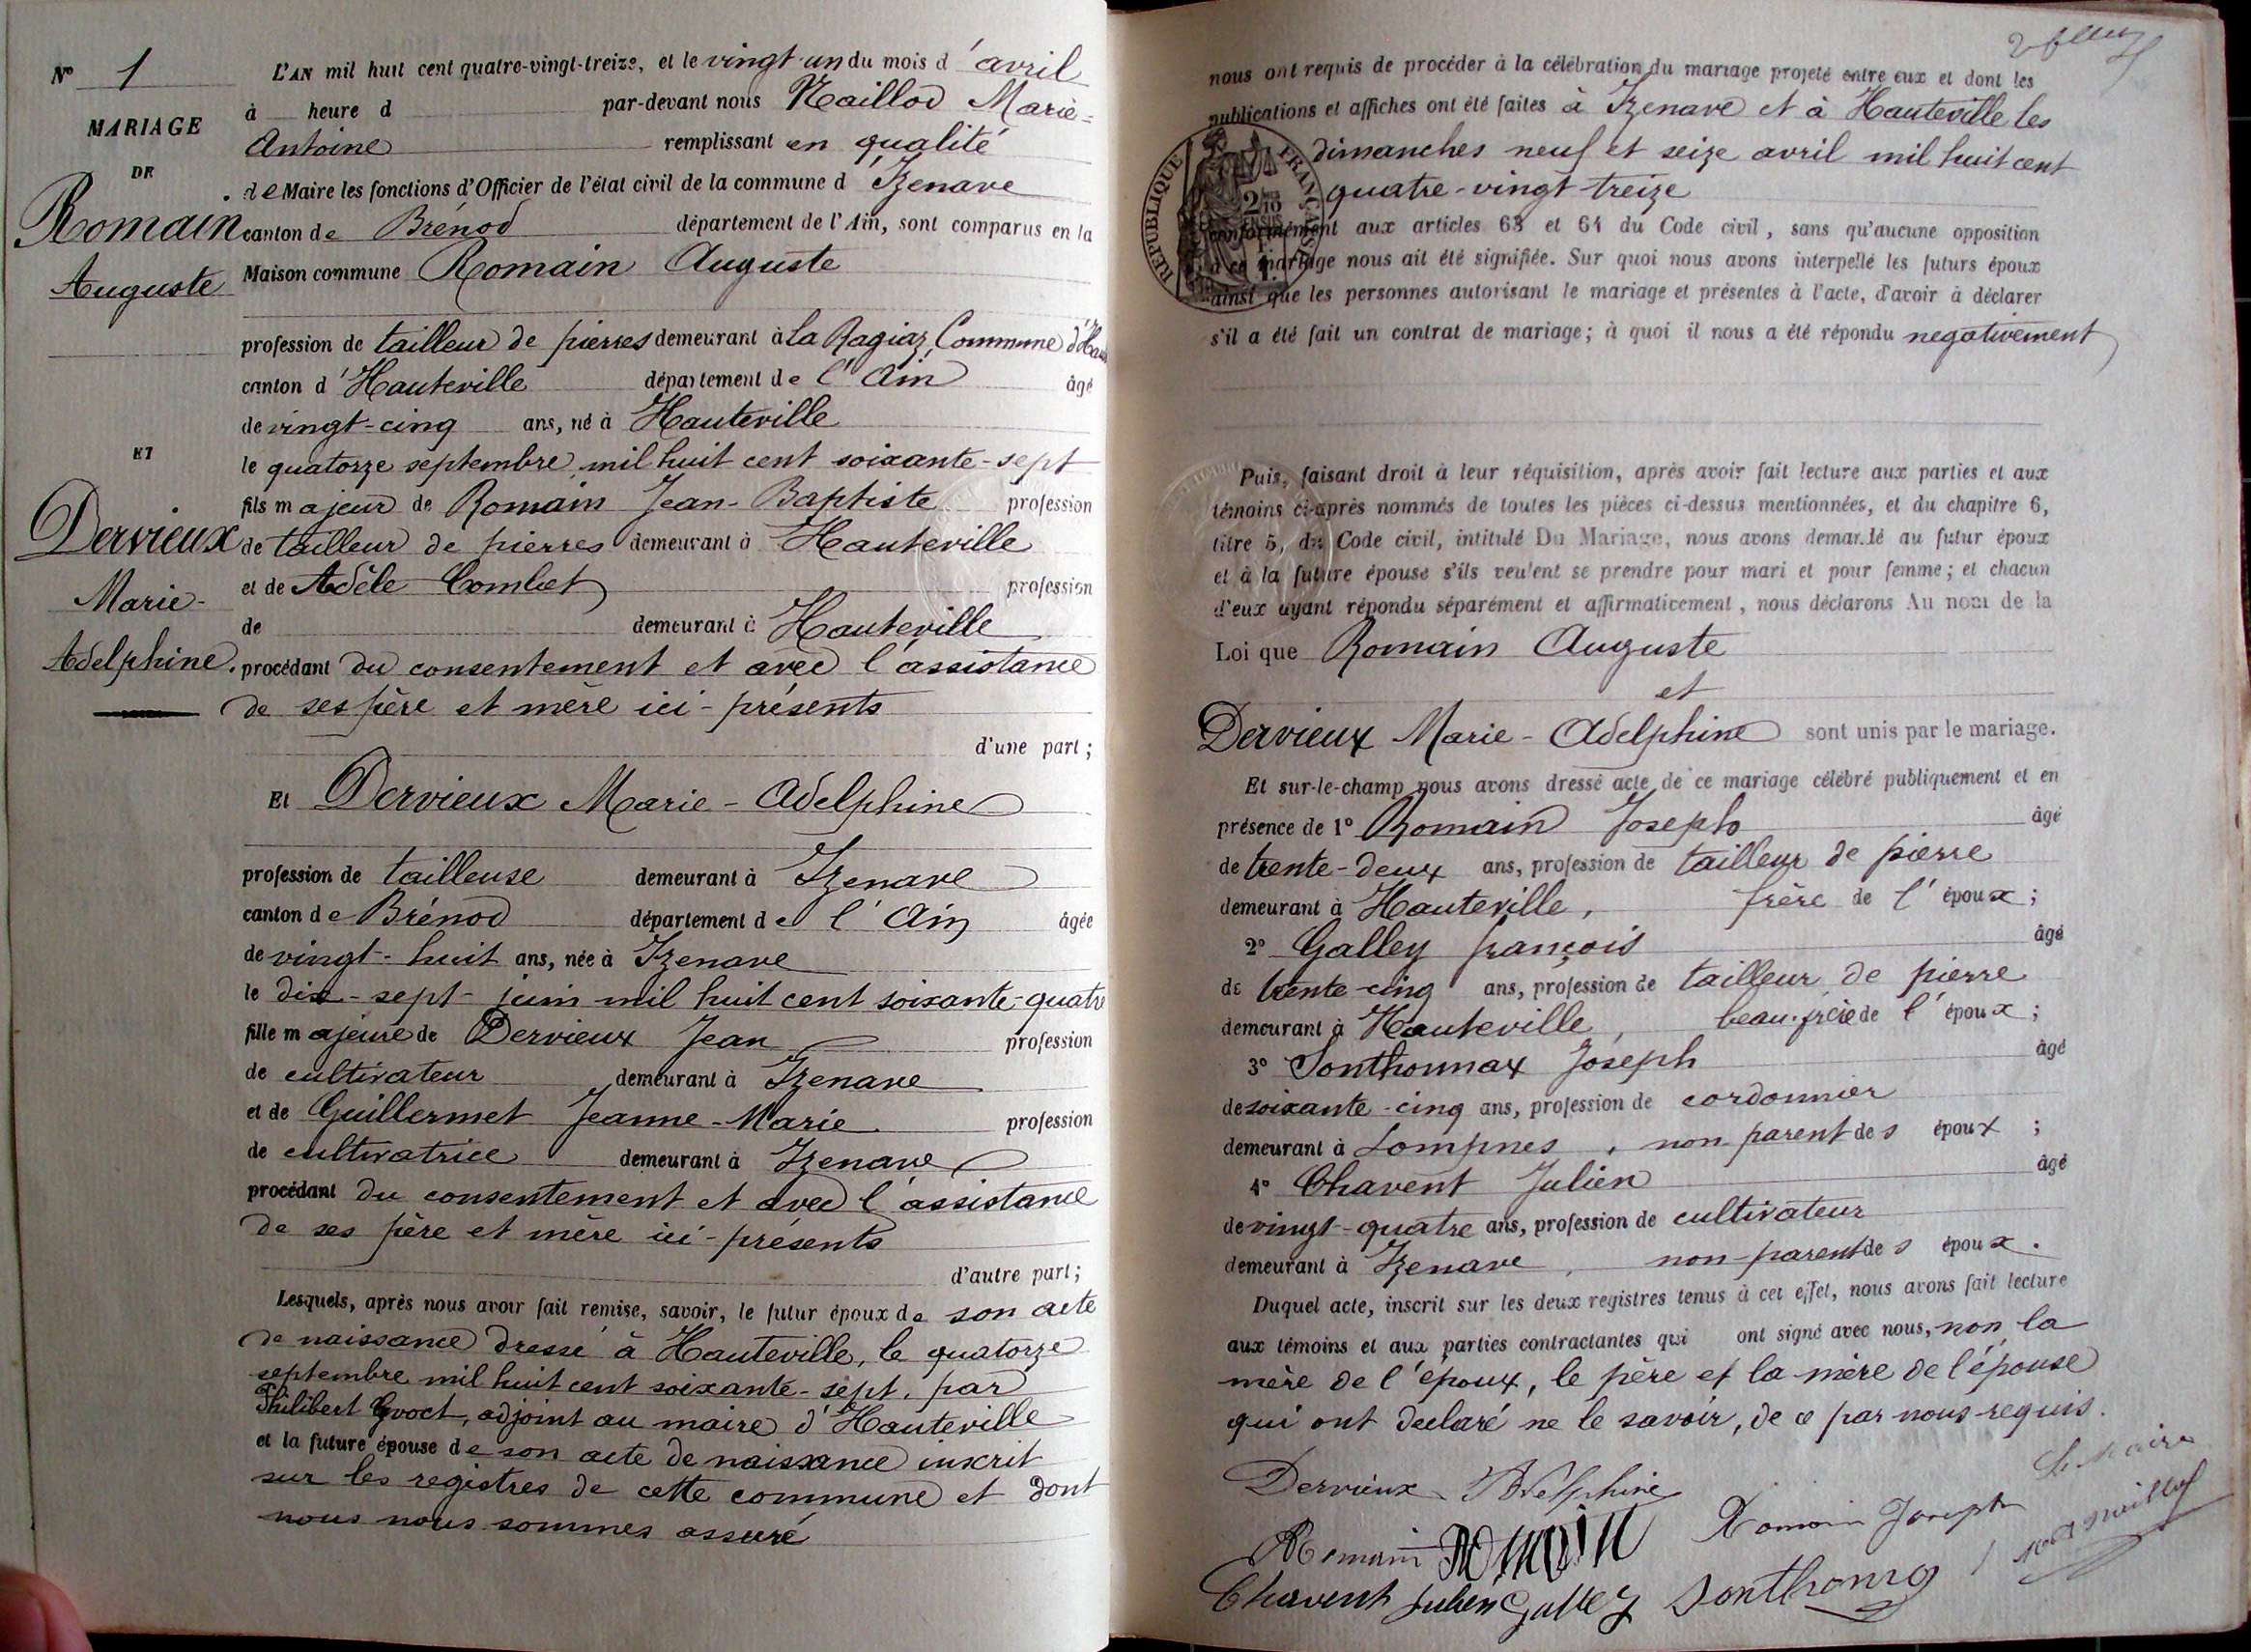 N° 1
MARIAGE
DE
Romain
Auguste
ET
Dervieux
Marie-
Adelphine.
L'AN mil huit cent quatre-vingt-treize, et le vingt-un du mois d'avril
à heure d par-devant nous Maillod Marie-
Antoine remplissant en qualité
de Maire les fonctions d'Officier de l'état civil de la commune d'Izenave
canton de Brénod département de l'Ain, sont comparus en la
Maison commune Romain Auguste
profession de tailleur de pierres demeurant à La Ragiaz, Commune d'Haut
canton d'Hauteville département de l'Ain âgé
de vingt-cinq ans, né à Hauteville
le quatorze septembre mil huit cent soixante-sept
fils majeur de Romain Jean-Baptiste profession
de tailleur de pierres demeurant à Hauteville
et de Adèle Combet profession
de demeurant à Hauteville
procédant du consentement et avec l'assistance
de ses père et mère ici-présents
d'une part;
Et Dervieux Marie-Adelphine
profession de tailleuse demeurant à Izenave
canton de Brénod département de l'Ain âgée
de vingt-huit ans, née à Izenave
le dix-sept juin mil huit cent soixante-quatre
fille majeure de Dervieux Jean profession
de cultivateur demeurant à Izenave
et de Guillermet Jeanne-Marie profession
de cultivatrice demeurant à Izenave
procédant du consentement et avec l'assistance
de ses père et mère ici-présents
d'autre part;
Lesquels, après nous avoir fait remise, savoir, le futur époux de son acte
de naissance dressé à Hauteville, le quatorze
septembre mil huit cent soixante-sept, par
Philibert Groct, adjoint au maire d'Hauteville
et la future épouse de son acte de naissance inscrit
sur les registres de cette commune et dont
nous nous sommes assuré
nous ont requis de procéder à la célébration du mariage projeté entre eux et dont les
publications et affiches ont été faites à Izenave et à Hauteville les
dimanches neuf et seize avril mil huit cent
quatre-vingt-treize
RÉPUBLIQUE FRANÇAISE
conformément aux articles 63 et 64 du Code civil, sans qu'aucune opposition
à ce mariage nous ait été signifiée. Sur quoi nous avons interpellé les futurs époux
ainsi que les personnes autorisant le mariage et présentes à l'acte, d'avoir à déclarer
s'il a été fait un contrat de mariage; à quoi il nous a été répondu negativement
Puis, faisant droit à leur réquisition, après avoir fait lecture aux parties et aux
témoins ci-après nommés de toutes les pièces ci-dessus mentionnées, et du chapitre 6,
titre 5, du Code civil, intitulé Du Mariage, nous avons demandé au futur époux
et à la future épouse s'ils veulent se prendre pour mari et pour femme; et chacun
d'eux ayant répondu séparément et affirmativement, nous déclarons Au nom de la
Loi que Romain Auguste
et
Dervieux Marie-Adelphine sont unis par le mariage.
Et sur-le-champ nous avons dressé acte de ce mariage célébré publiquement et en
présence de 1° Romain Joseph âgé
de trente-deux ans, profession de tailleur de pierre
demeurant à Hauteville, frère de l'époux;
2° Galley françois âgé
de trente-cinq ans, profession de tailleur de pierre
demeurant à Hauteville, beau-frère de l'époux;
3° Sonthonnax Joseph âgé
de soixante-cinq ans, profession de cordonnier
demeurant à Lompnes, non parent des époux;
4° Chavent Julien âgé
de vingt-quatre ans, profession de cultivateur
demeurant à Izenave, non-parent des époux.
Duquel acte, inscrit sur les deux registres tenus à cet effet, nous avons fait lecture
aux témoins et aux parties contractantes qui ont signé avec nous, non la
mère de l'époux, le père et la mère de l'épouse
qui ont declaré ne le savoir, de ce par nous requis.
Dervieux Adelphine
Le Maire
Romain Romain Romain Joseph
Chavent Julien Galley Sonthonax